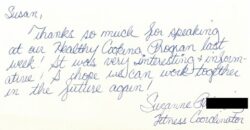 Susan,
Thanks so much for speaking
at our Healthy Cooking Program last
week! It was very interesting + inform-
ative! I hope we can work together
in the future again!
Suzanne
Fitness Coordinator